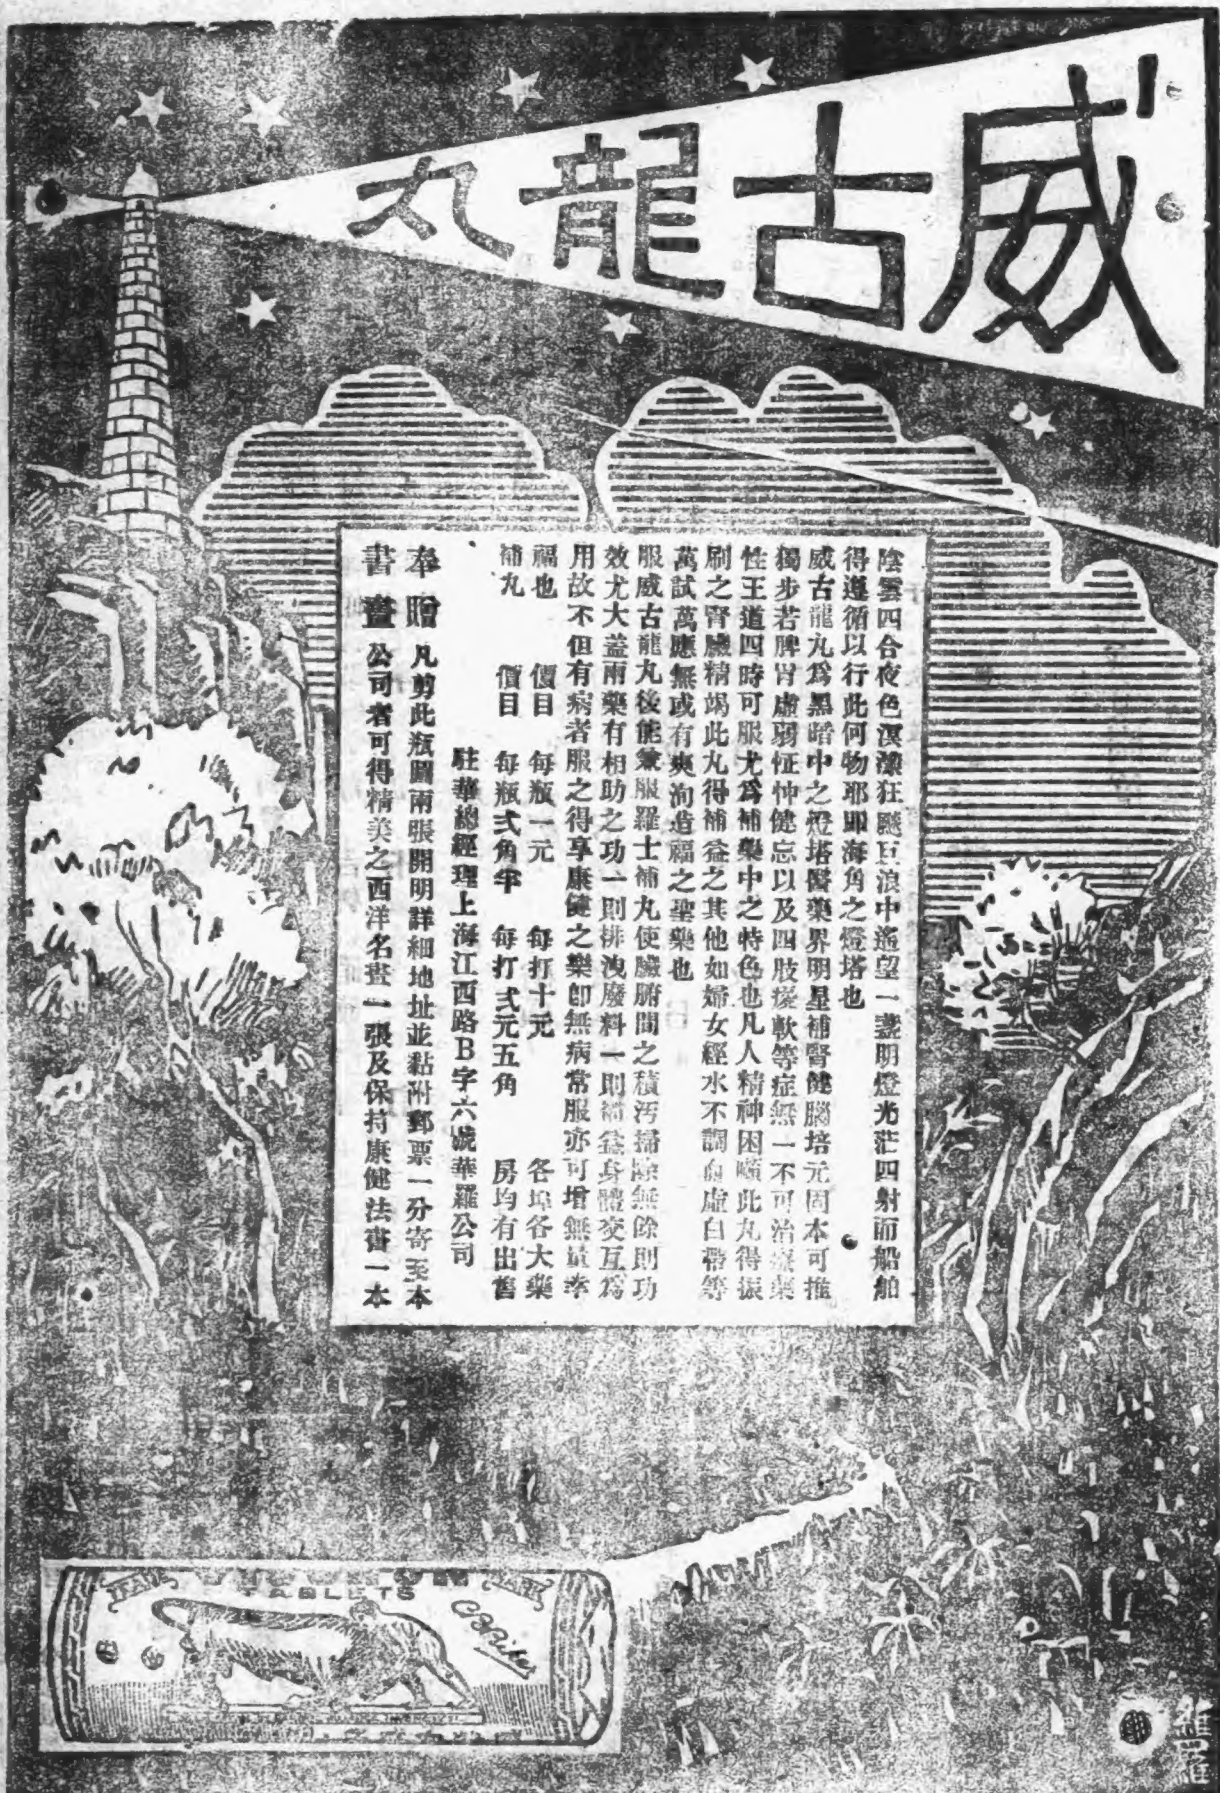 威古龍丸
陰雲四合夜色溟濛狂飈巨浪中遙望一盞明燈光茫四射而船舶
得遵循以行此何物耶即海角之燈塔也
威古龍丸爲黑暗中之燈塔醫藥界明星補腎健腦培元固本可推
獨步若脾胃虛弱怔忡健忘以及四肢痿軟等症無一不可治療藥
性王道四時可服尤爲補藥中之特色也凡人精神困頓此丸得振
刷之腎臟精竭此丸得補益之其他如婦女經水不調血虛白帶等
萬試萬應無或有爽洵造福之聖藥也
服威古龍丸後能兼服羅士補丸使臟腑間之積污掃除無餘則功
效尤大蓋兩藥有相助之功一則排洩廢料一則補益身體交互爲
用故不但有病者服之得享康健之樂卽無病常服亦可增無量幸
福也 價目 每瓶一元 每打十元 各埠各大藥
補丸 價目 每瓶弍角半 每打弍元五角 房均有出售
駐華總經理上海江西路B字六號華羅公司
奉贈 凡剪此瓶圖兩張開明詳細地址並黏附郵票一分寄至本
書畫 公司者可得精美之西洋名畫一張及保持康健法書一本
TABLETS